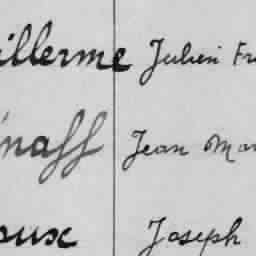 illerme Julien Fr
naff Jean Mar
oux Joseph